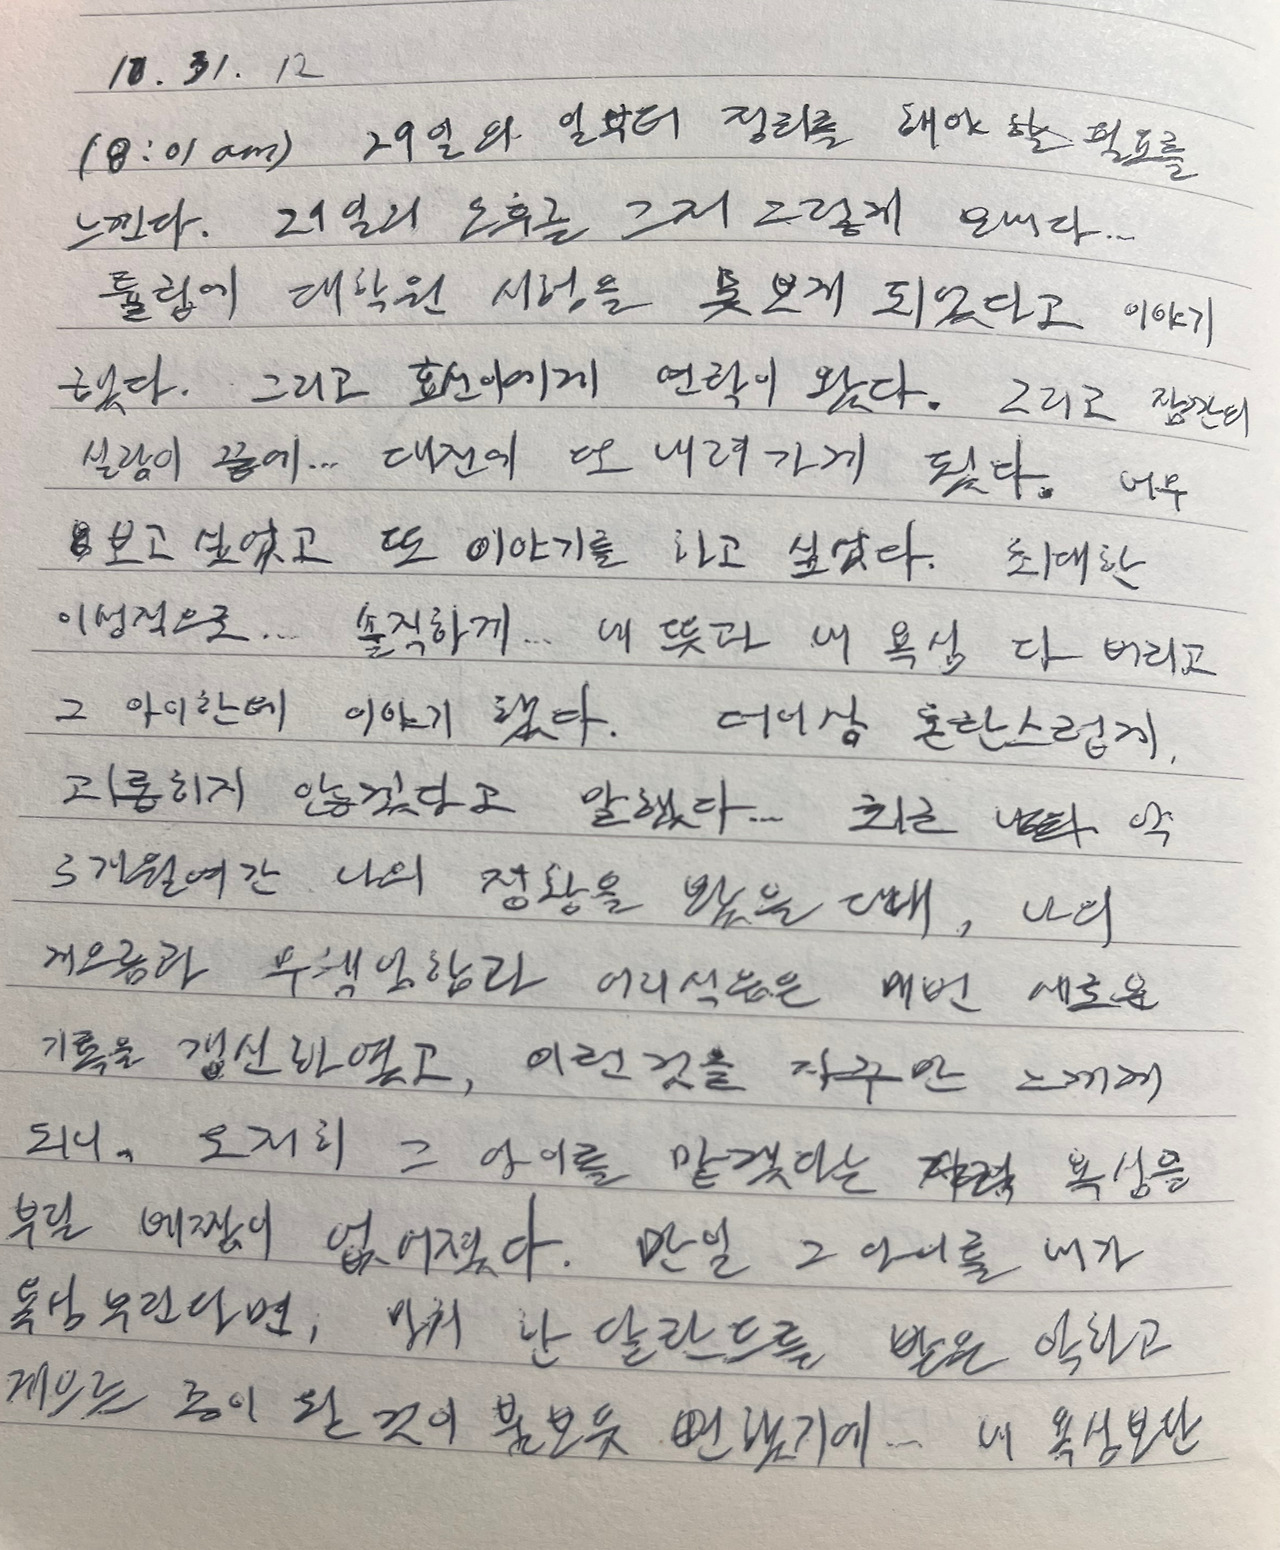 10. 31. 12
(8:01 am) 29일의 일부터 정리를 해야 할 필요를
느낀다. 29일의 오후를 그저 그렇게 보내다...
튤립에 대학원 시험을 못 보게 되었다고 이야기
했다. 그리고 효선아에게 연락이 왔다. 그리고 잠깐의
실랑이 끝에... 대전에 또 내려가게 됐다. 너무
보고싶었고 또 이야기를 하고 싶었다. 최대한
이성적으로... 솔직하게... 내 뜻과 내 욕심 다 버리고
그 아이한테 이야기 했다. 더이상 혼란스럽게,
괴롭히지 않겠다고 말했다... 최근 약
3개월여간 나의 정황을 봤을 때, 나의
게으름과 무책임함과 어리석음은 매번 새로운
기록을 갱신하였고, 이런것을 자꾸만 느끼게
되니, 도저히 그 아이를 맡겠다는 욕심을
부릴 배짱이 없어졌다. 만일 그 아이를 내가
욕심부린다면, 마치 한 달란트를 받은 악하고
게으른 종이 될 것이 불보듯 뻔했기에... 내 욕심보단